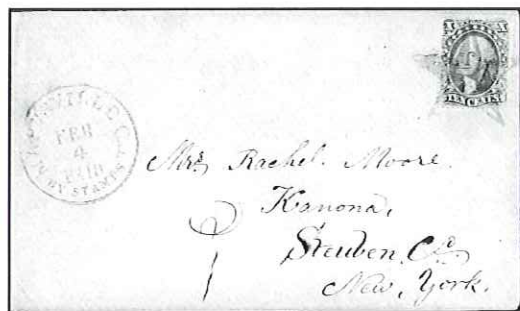 FEB
4
PAID
BY STAMPS
Mrs. Rachel Moore.
Kanona,
Steuben, Co.
New, York.